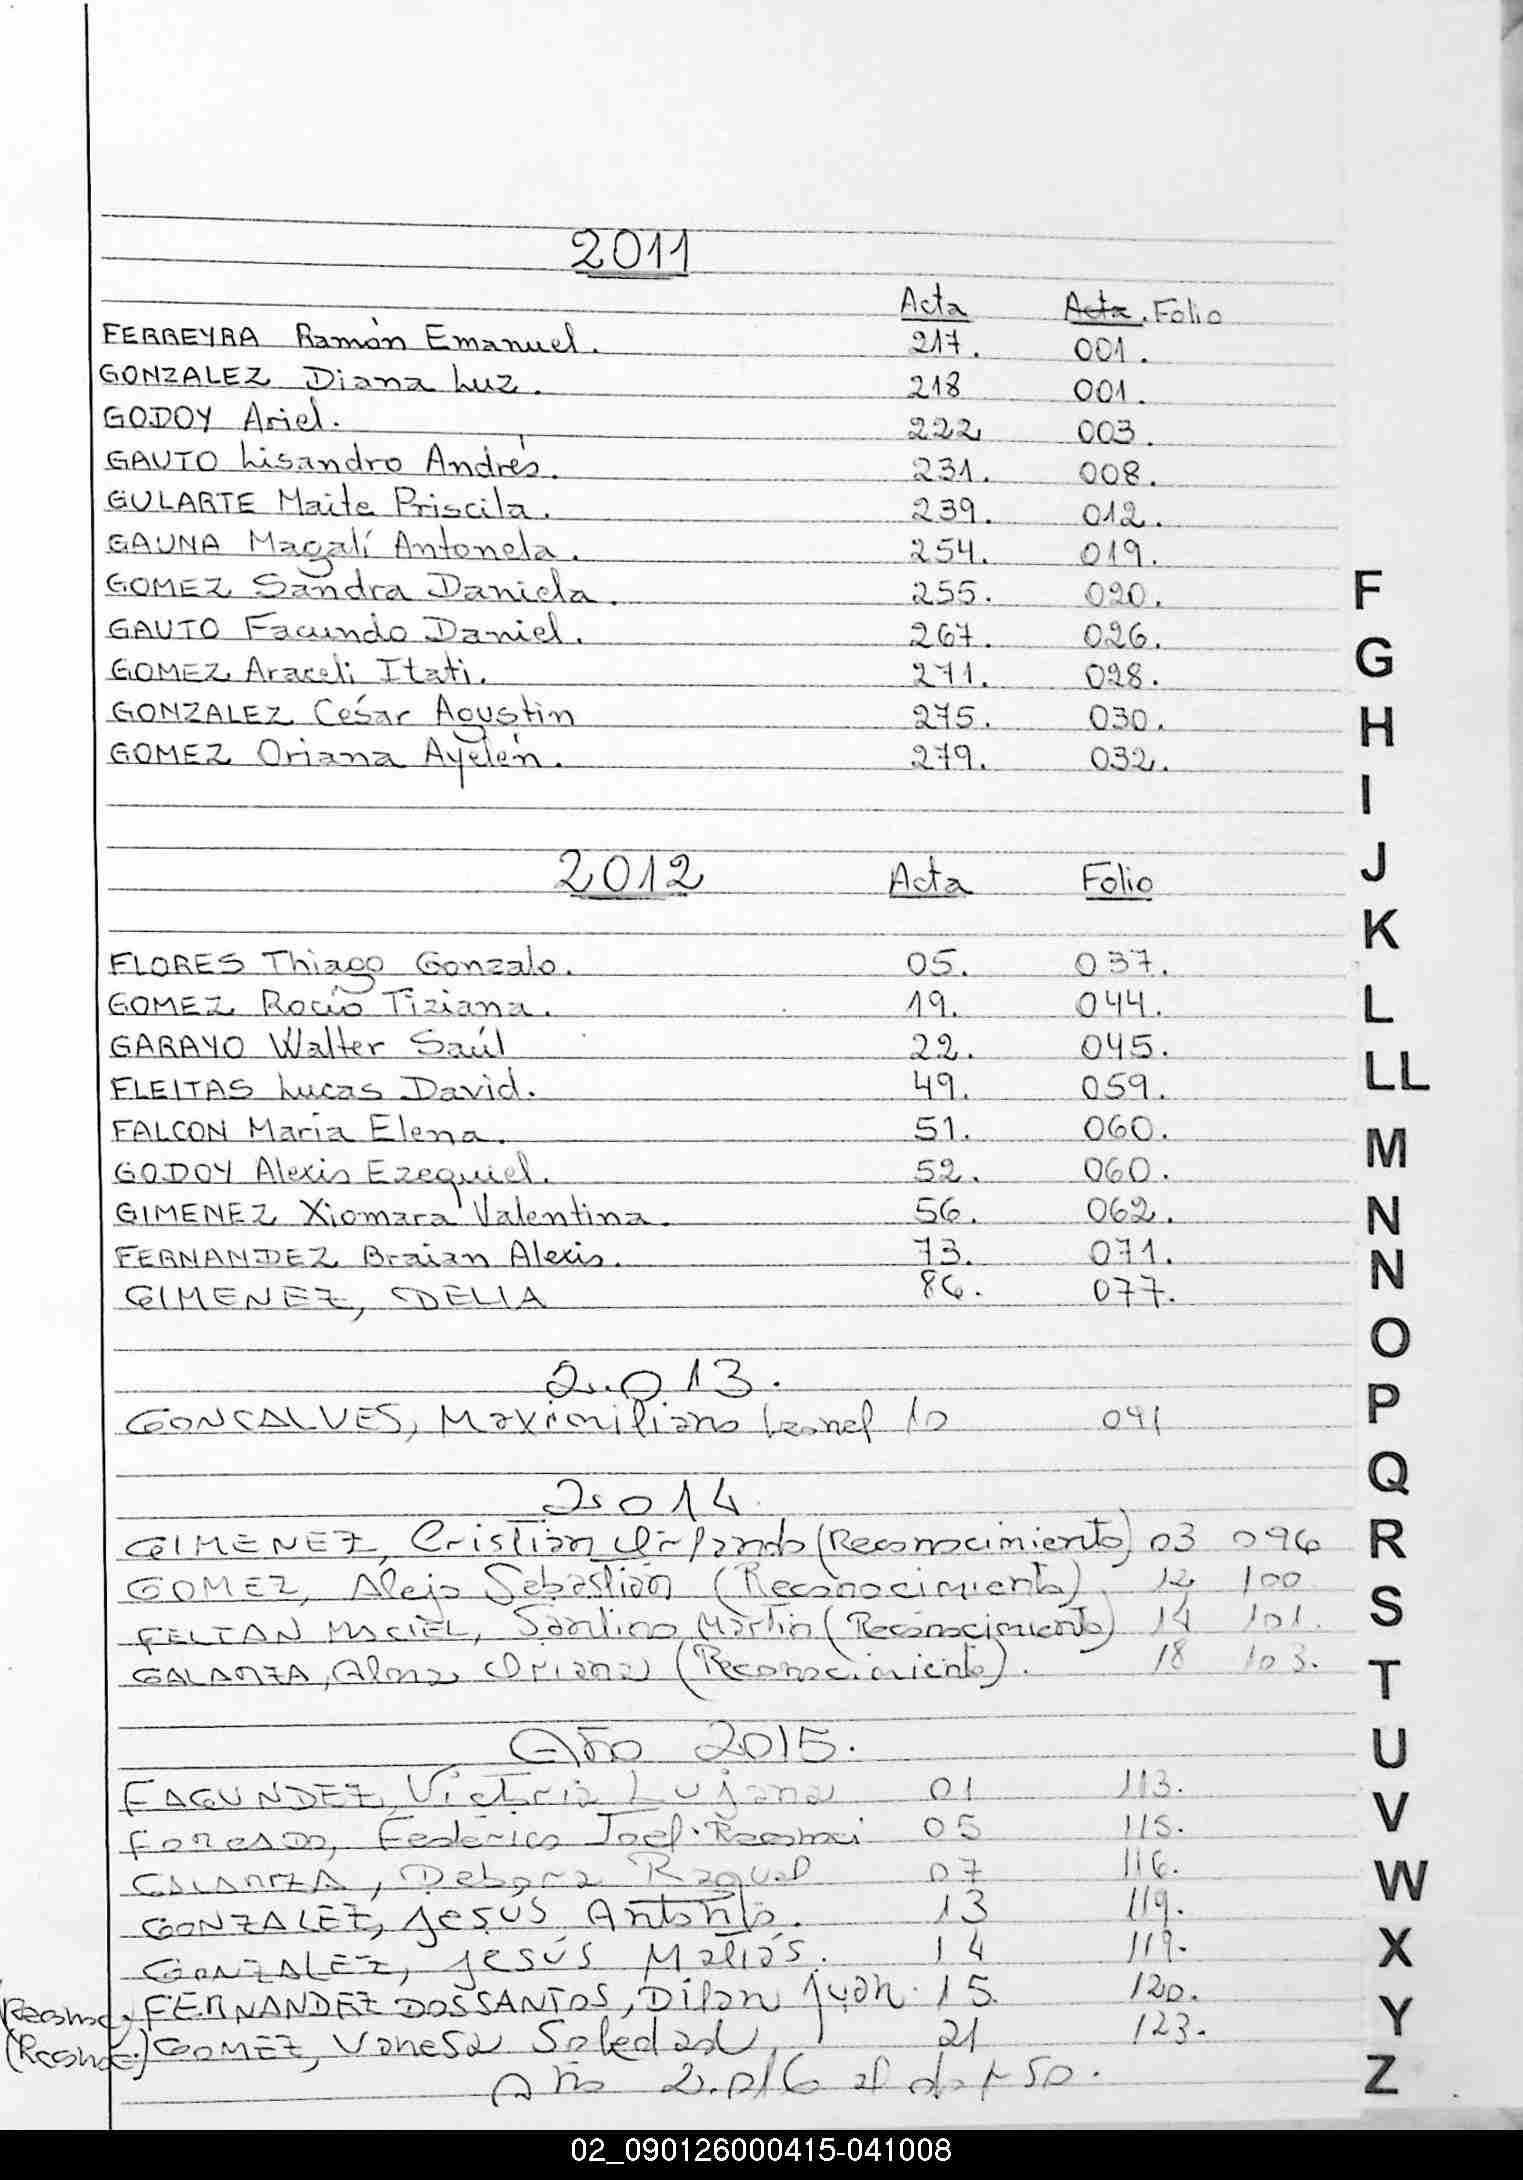 2011
Acta Acta. Folio
FERREYRA Ramón Emanuel. 217. 001.
GONZALEZ Diana Luz. 218 001.
GODOY Ariel. 222 003.
GAUTO Lisandro Andrés. 231. 008.
GULARTE Maite Priscila. 239. 012.
GAUNA Magalí Antonela. 254. 019.
GOMEZ Sandra Daniela. 255. 020.
GAUTO Facundo Daniel. 267. 026.
GOMEZ Araceli Itati. 271. 028.
GONZALEZ César Agustin 275. 030.
GOMEZ Oriana Ayelén. 279. 032.
2012 Acta Folio
FLORES Thiago Gonzalo. 05. 037.
GOMEZ Rocío Tiziana. 19. 044.
GARAYO Walter Saúl 22. 045.
FLEITAS Lucas David. 49. 059.
FALCON Maria Elena. 51. 060.
GODOY Alexis Ezequiel. 52. 060.
GIMENEZ Xiomara Valentina. 56. 062.
FERNANDEZ Braian Alexis. 73. 071.
GIMENEZ, DELIA 86. 077.
2.013.
GONCALVES, Maximiliano Leonel 10 091
2014
GIMENEZ, Cristian Orlando (Reconocimiento) 03 096
GOMEZ, Alejo Sebastián (Reconocimiento) 12 100
FELTAN MACIEL, Santino Martin (Reconocimiento) 14 101.
GALARZA, Alma Oriana (Reconocimiento). 18 103.
Año 2015.
FAGUNDEZ, Victoria Lujana 01 113.
Federico Joel. 05 115.
GALARZA, Debora Raquel 07 116.
GONZALEZ, Jesús Antonio. 13 119.
GONZALEZ, Jesús Matías. 14 119.
FERNANDEZ DOSSANTOS, Dilan Juan. 15. 120.
GOMEZ, Vanesa Soledad 21 123.
Año 2.016 al dorso.
F
G
H
I
J
K
L
LL
M
N
N
O
P
Q
R
S
T
U
V
W
X
Y
Z
02_090126000415-041008